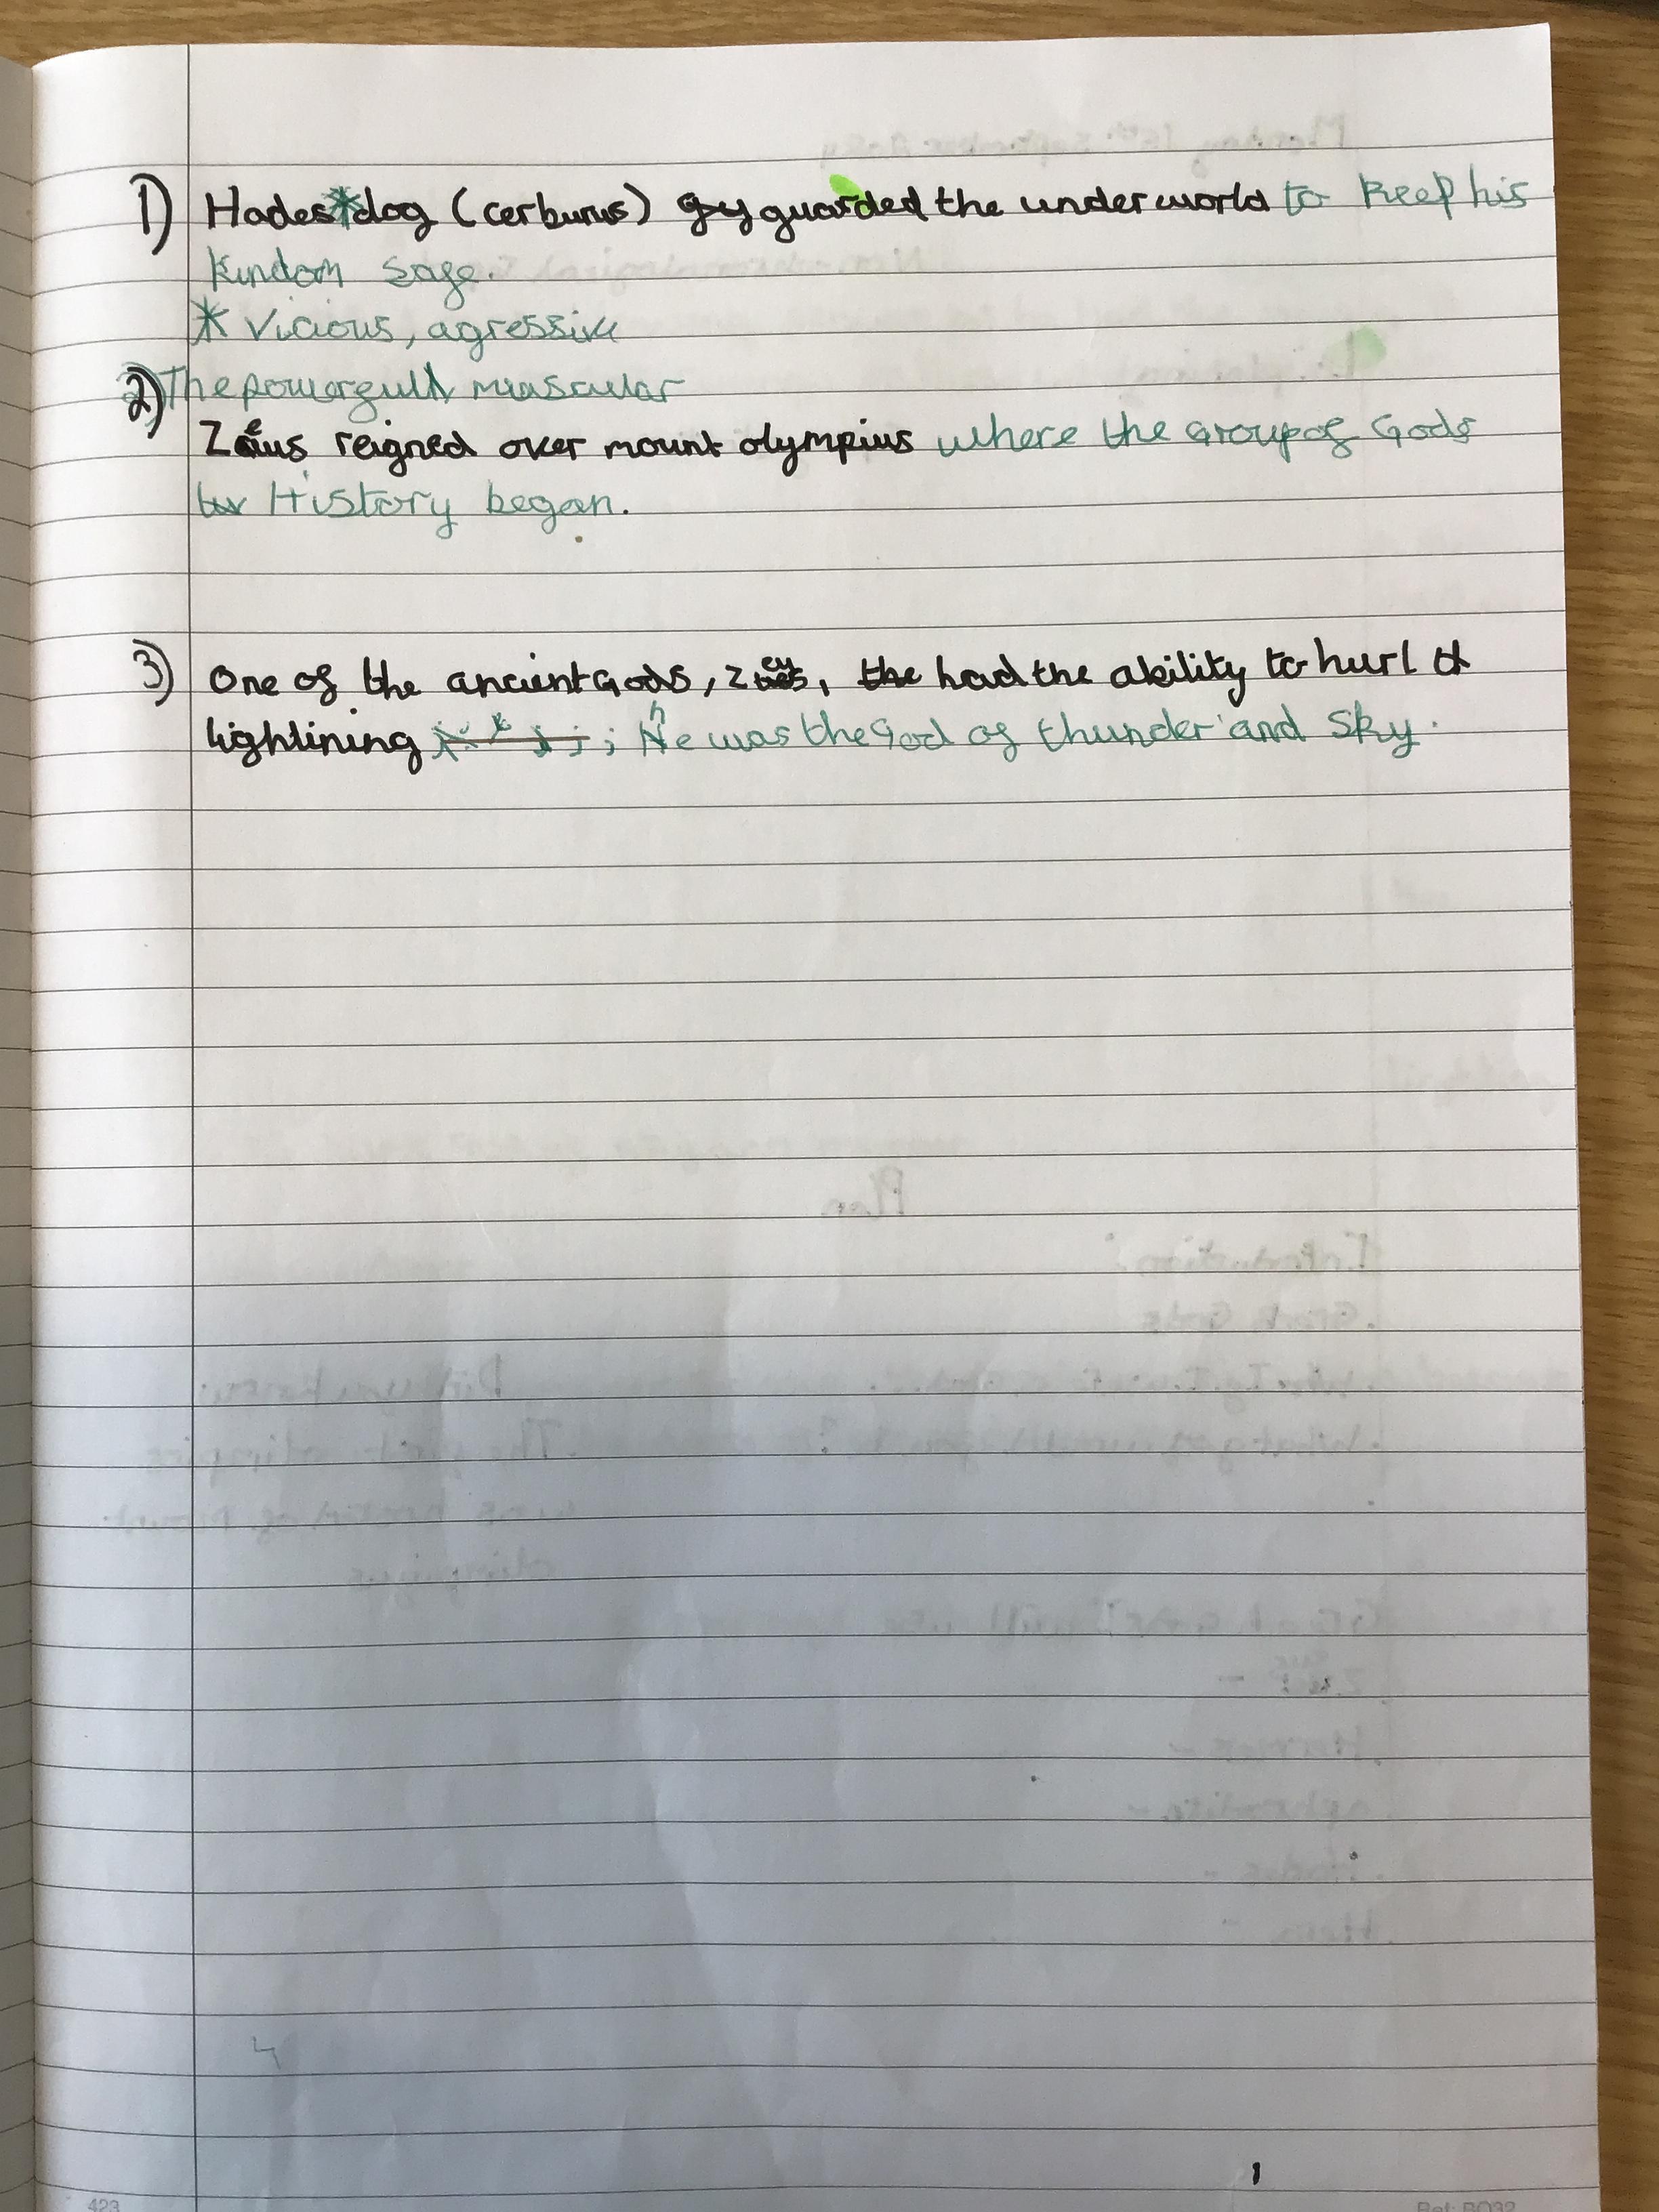 1) Hades* dog (cerburus) gy guarded the underworld to keep his
kindom safe.
* Vicious, agressive
2) The powerfull muscular
Zeus reigned over mount olympius where the Group of Gods
History began.
3) One of the ancient Gods, Zeus, the had the ability to hurl
lightining ; he was the God of thunder and Sky.
423
Ref: BO32